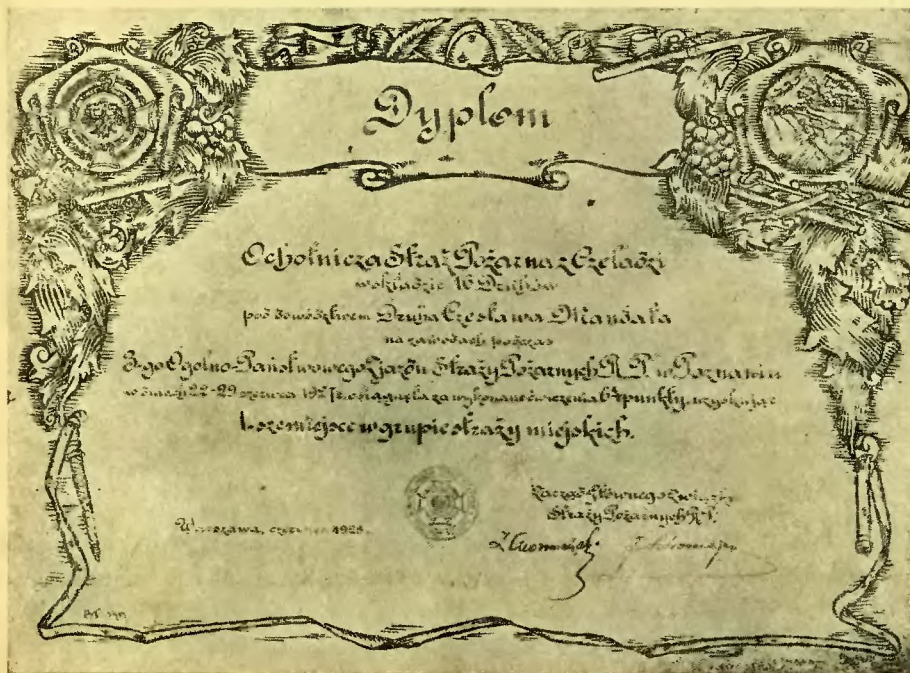 Dyplom
Ochotnicza Straż Pożarna z Czeladzi
w składzie 16 Druhów
pod dowództwem Druha Czesława Mandata
na zawodach podczas
3-go Ogólno-Państwowego Zjazdu Straży Pożarnych R.P. w Poznaniu
w dniach 22-29 czerwca osiągnęła za wykonane ćwiczenia punkty, uzyskując
1-sze miejsce w grupie straży miejskich.
Zarząd Głównego Związku
Straży Pożarnych R.P.
Warszawa, czerwiec